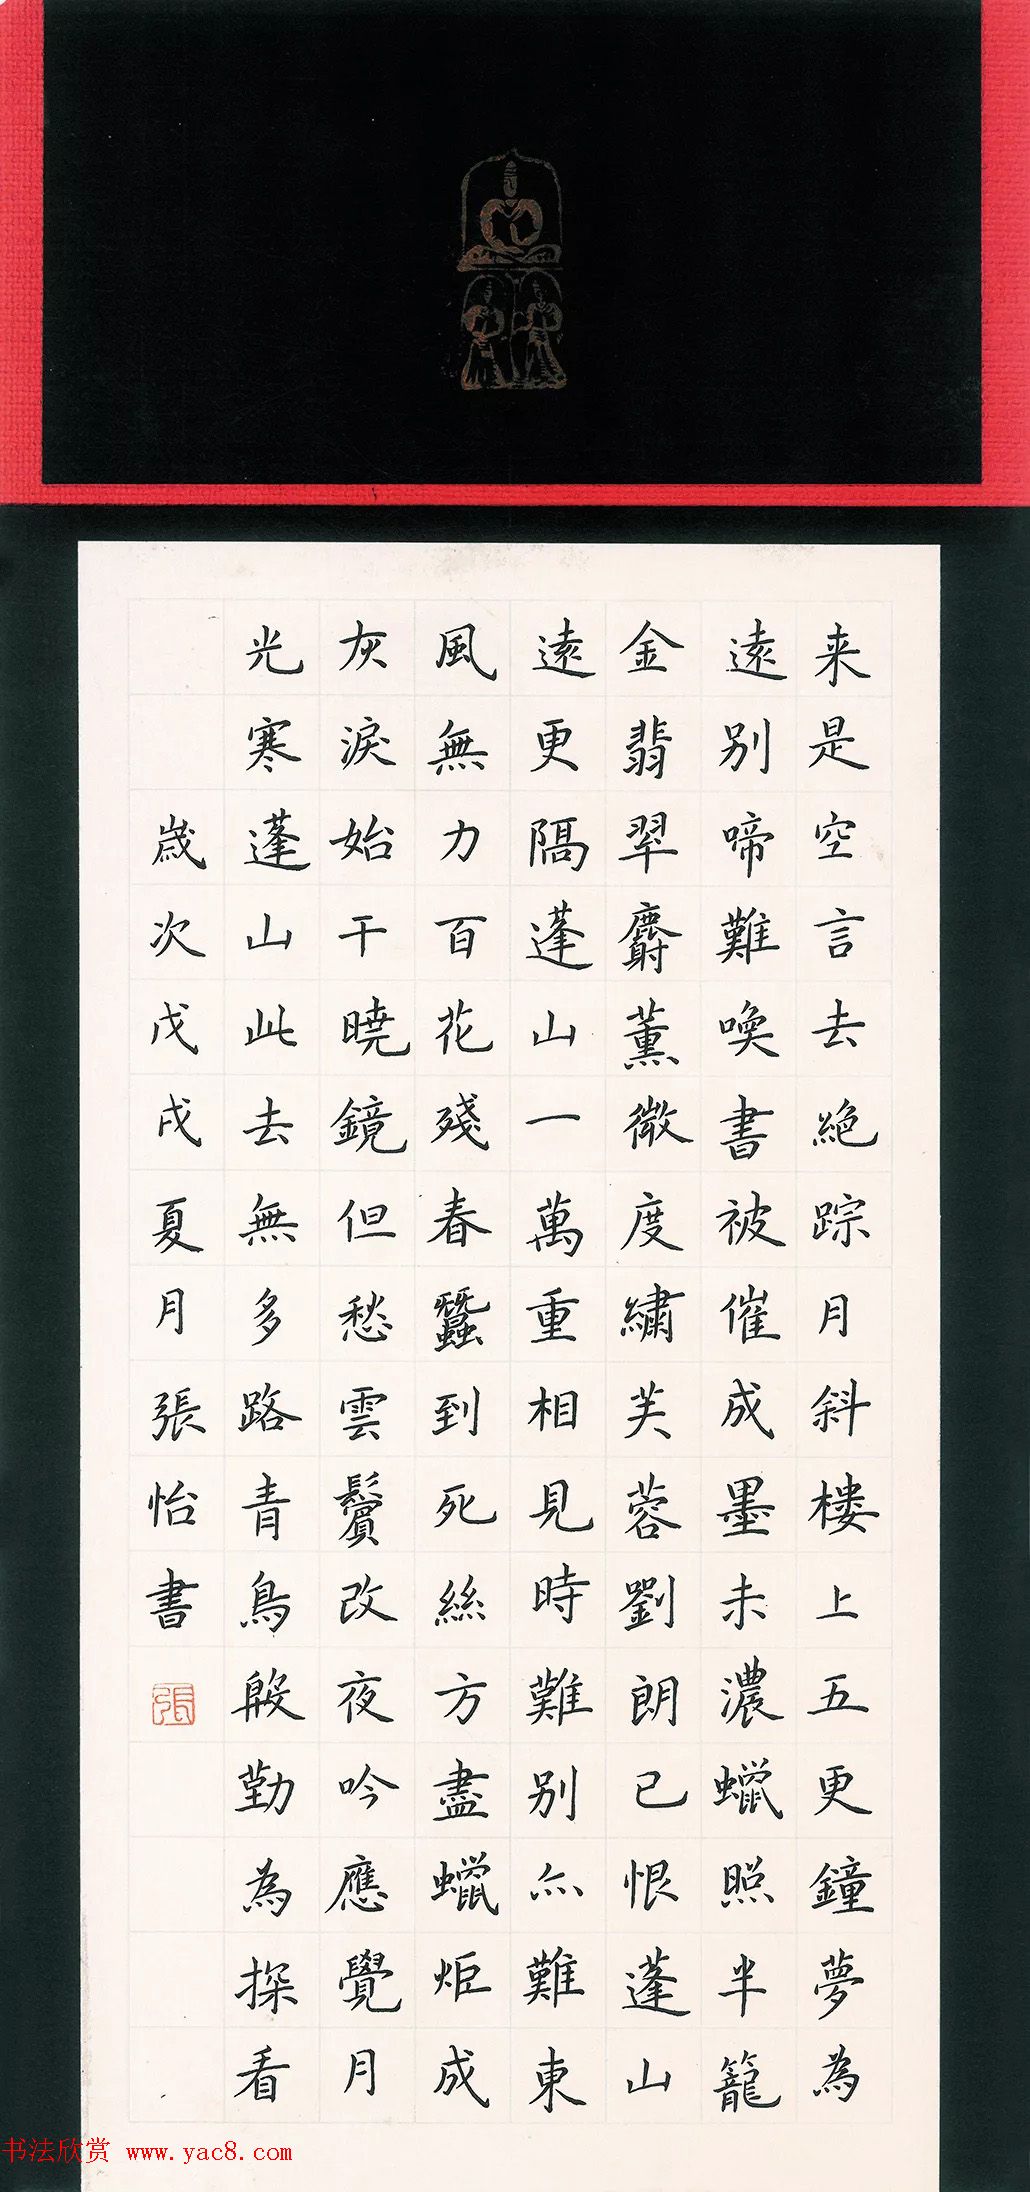 来是空言去絕踪月斜楼上五更鐘夢為
遠別啼難喚書被催成墨未濃蠟照半籠
金翡翠麝薰微度繡芙蓉劉朗已恨蓬山
遠更隔蓬山一萬重相見時難別亦難東
風無力百花殘春蠶到死絲方盡蠟炬成
灰淚始干曉鏡但愁雲鬢改夜吟應覺月
光寒蓬山此去無多路青鳥殷勤為探看
歲次戊戌夏月張怡書
張
书法欣赏 www.yac8.com